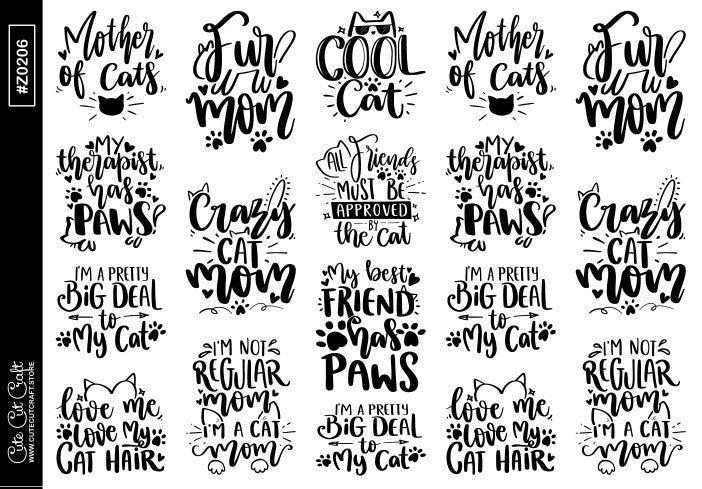 #Z0206
Cute Cut Craft
WWW.CUTECUTCRAFT.STORE
Mother
of Cats
MY
therapist
has
PAWS
I'M A PRETTY
BIG DEAL
to
My Cat
love me
love My
CAT HAIR
Fur
mom
Crazy
CAT
mom
I'M NOT
REGULAR
mom
I'M A CAT
mom
COOL
Cat
All Friends
MUST BE
APPROVED
BY
the cat
My best
FRIEND
has
PAWS
I'M A PRETTY
BIG DEAL
to
My Cat
Mother
of Cats
MY
therapist
has
PAWS
I'M A PRETTY
BIG DEAL
to
My Cat
love me
love My
CAT HAIR
Fur
mom
Crazy
CAT
mom
I'M NOT
REGULAR
mom
I'M A CAT
mom